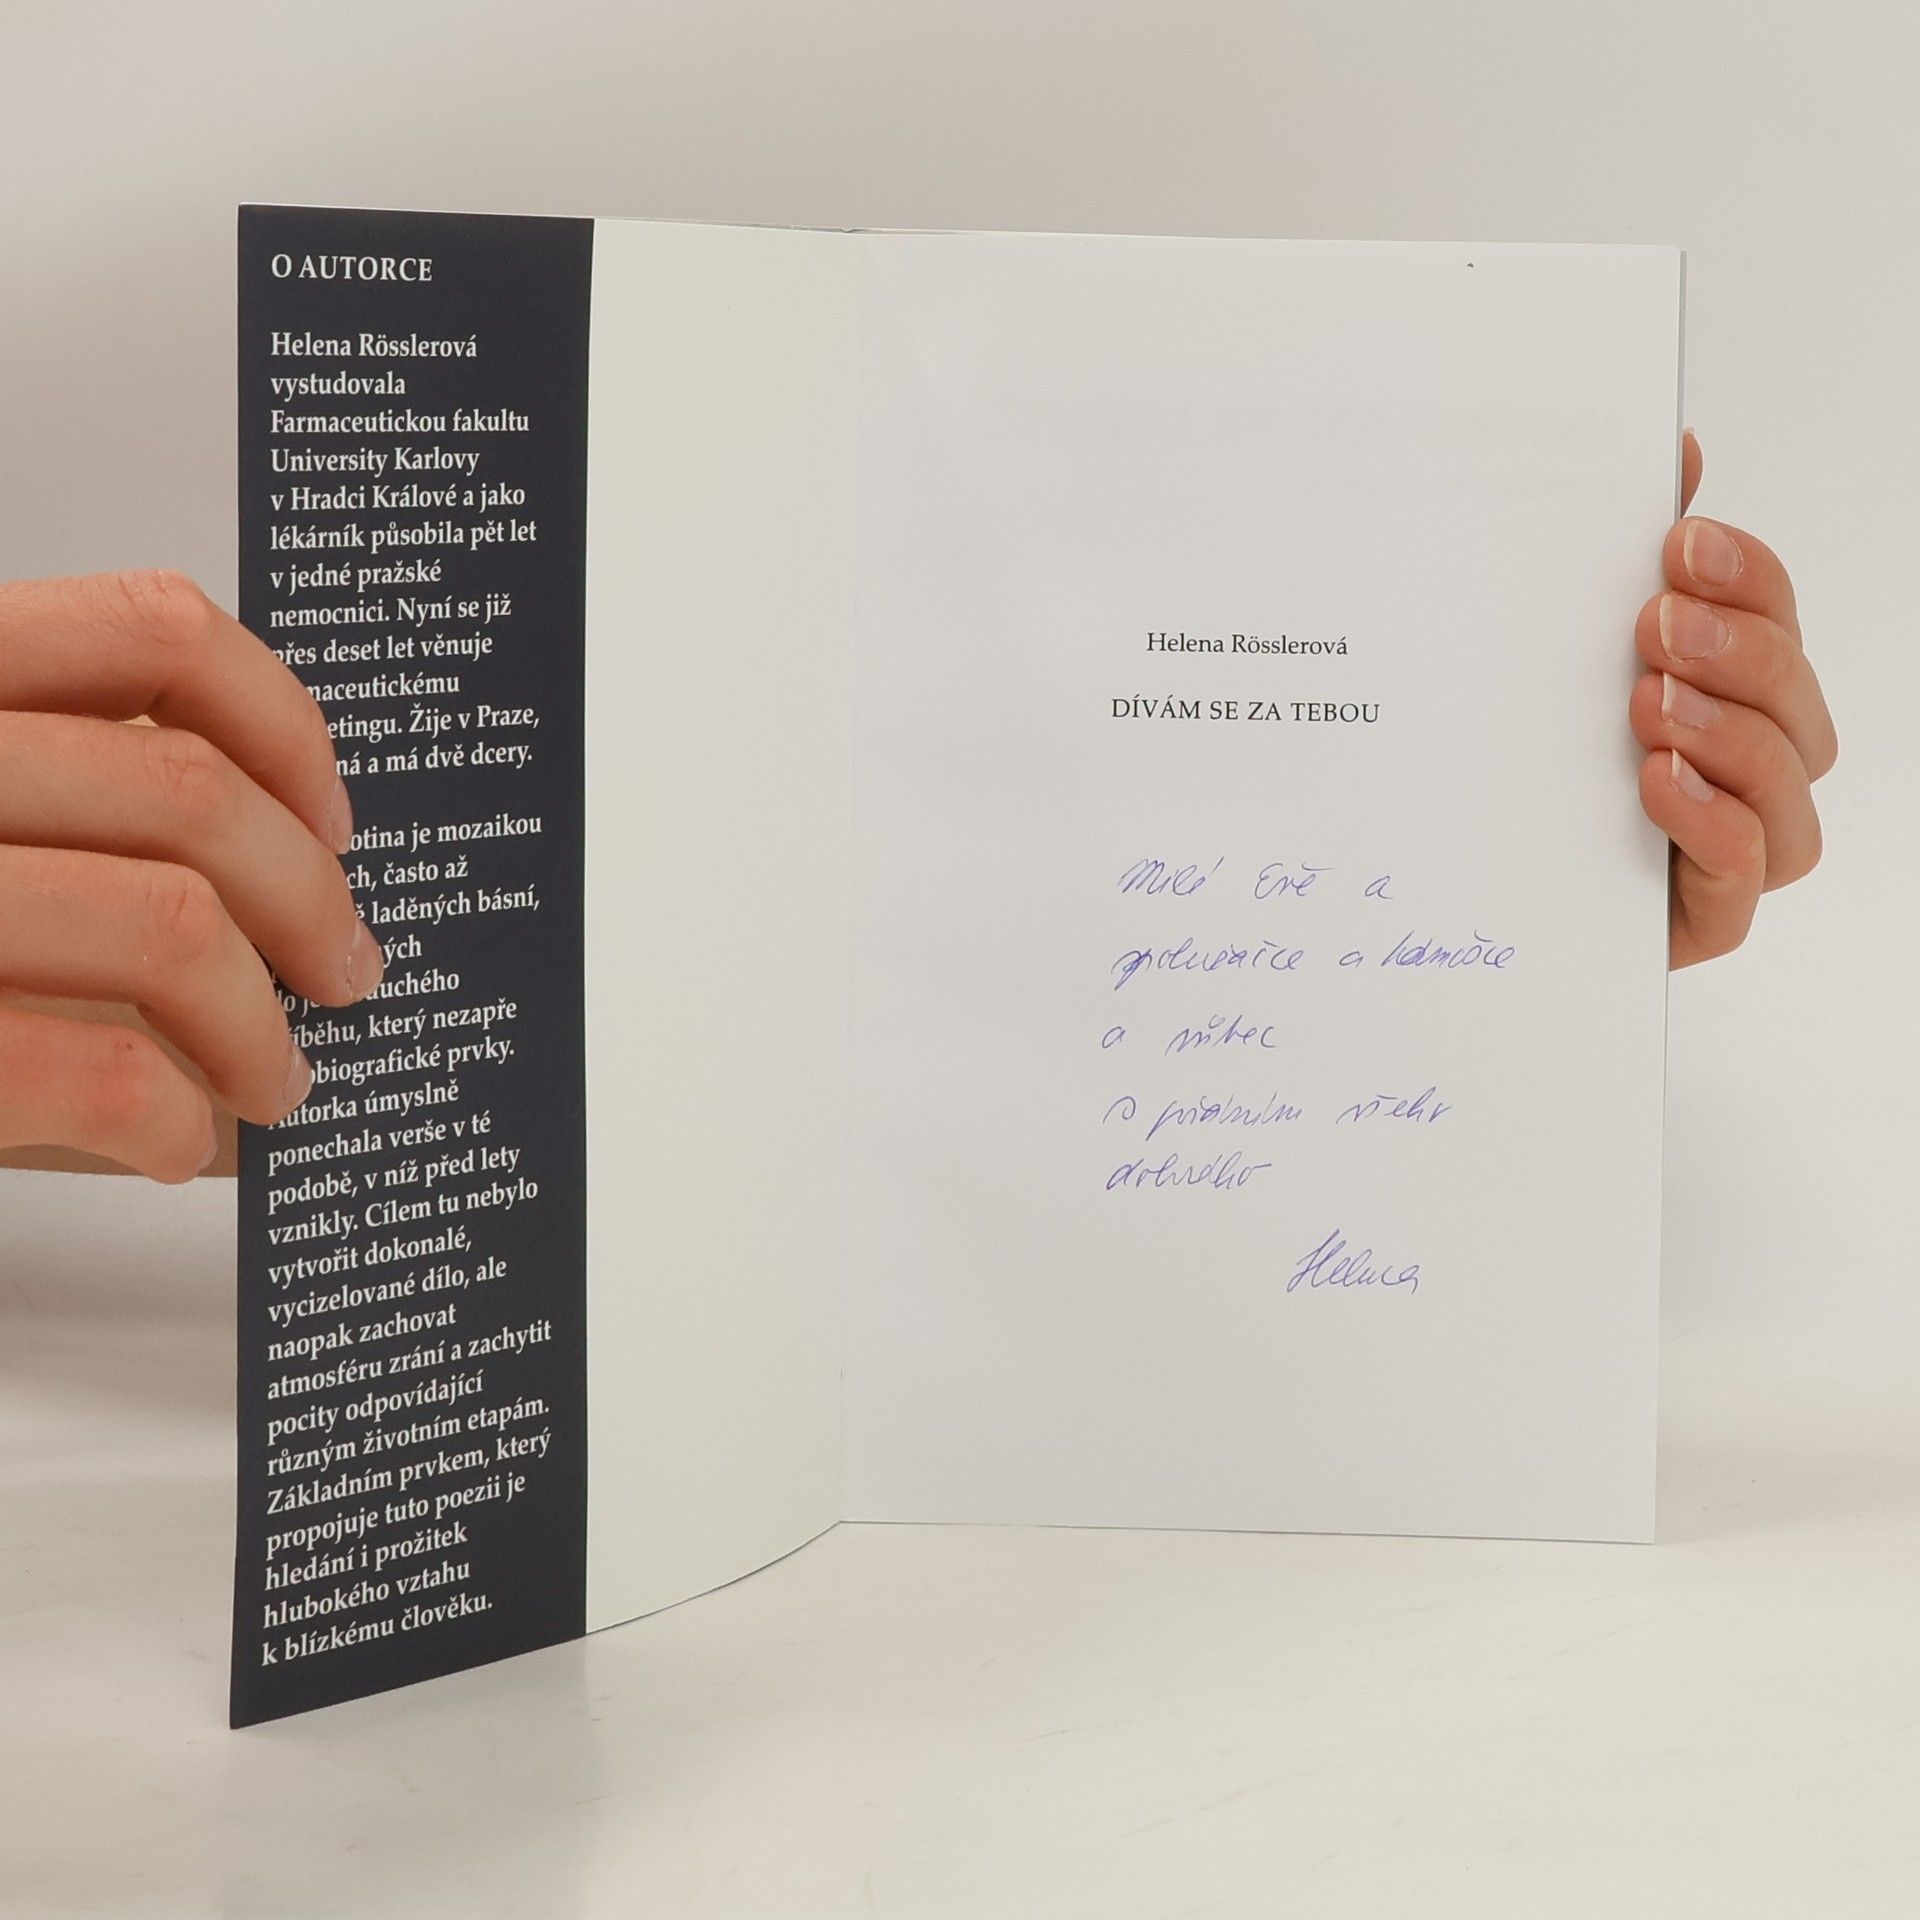 O AUTORCE
Helena Rösslerová
vystudovala
Farmaceutickou fakultu
University Karlovy
v Hradci Králové a jako
lékárník působila pět let
v jedné pražské
nemocnici. Nyní se již
přes deset let věnuje
maceutickému
etingu. Žije v Praze,
ná a má dvě dcery.
otina je mozaikou
ch, často až
ě laděných básní,
ých
do je duchého
íběhu, který nezapře
obiografické prvky.
Autorka úmyslně
ponechala verše v té
podobě, v níž před lety
vznikly. Cílem tu nebylo
vytvořit dokonalé,
vycizelované dílo, ale
naopak zachovat
atmosféru zrání a zachytit
pocity odpovídající
různým životním etapám.
Základním prvkem, který
propojuje tuto poezii je
hledání i prožitek
hlubokého vztahu
k blízkému člověku.
Helena Rösslerová
DÍVÁM SE ZA TEBOU
Milé Evě a
a
a vůbec
s přáním všeho
dobrého
Helena